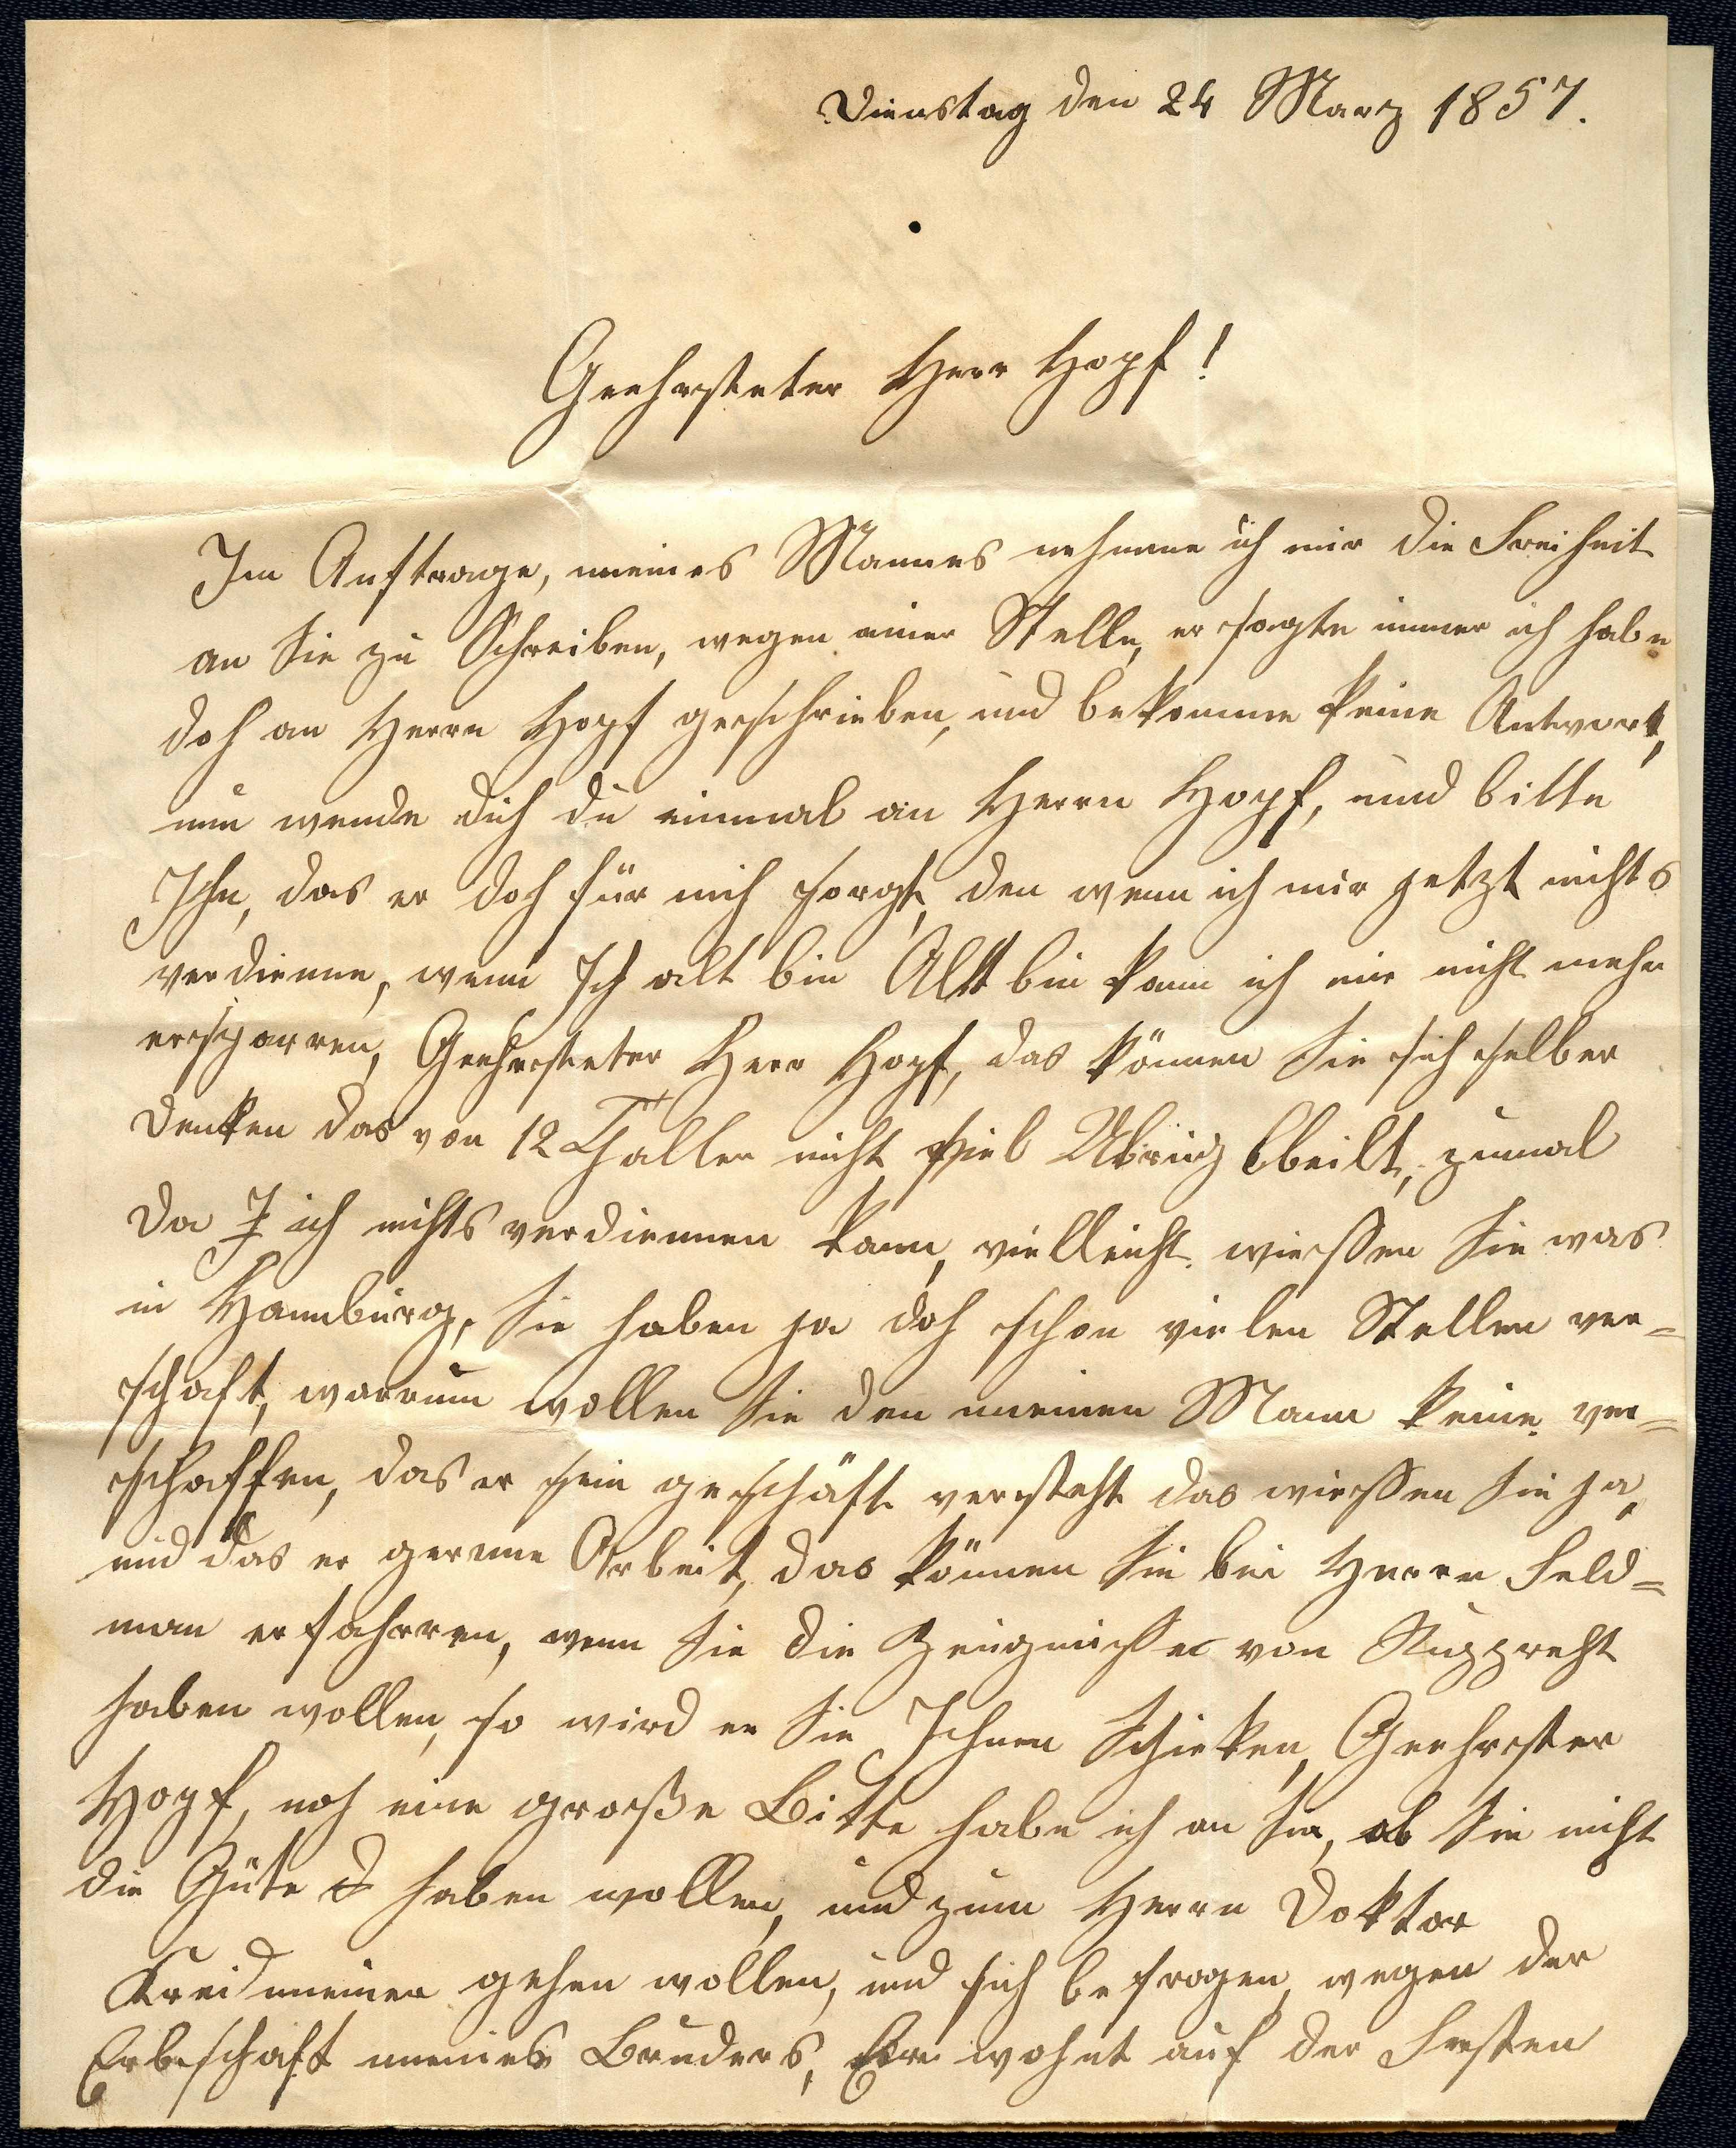 Dienstag den 24 Marz 1857.
Geehrsteter Herr Hopf!
Im Auftrage, meines Mannes nehmme ich mir die Freiheit
an Sie zu Schreiben, wegen einer Stelle, er sagte immer ich habe
doch an Herrn Hopf geschrieben, und bekomme keine Antwort,
nun wende dich du einmal an Herrn Hopf, und bitte
Ihn, das er doch für mich sorgt, den wenn ich mir jetzt nichts
verdienne, wenn Ich alt bin Alt bin kann ich mir nicht mehr
ersparren, Geehrsteter Herr Hopf, das können Sie sich selber
denken das von 12 Thaller nicht viel Übrig bleibt, zumal
da I ich nichts verdiennen kann, vielleicht wiessen Sie was
in Hamburg, Sie haben ja doch schon vielen Stellen ver=
schaft, warrum wollen Sie den meinen Mann keine ver=
schaffen, das er sein geschäft versteht das wiessen Sie ja,
und das er gernne Arbeit, das können Sie bei Herrn Feld=
man erfahrren, wenn Sie die Zeugniesse von Rupprecht
haben wollen, so wird er Sie Ihnen Schicken, Geehrster
Hopf, noch eine große Bitte habe ich an Sie, ob Sie nicht
die Güte haben wollen, und zum Herrn Doktor
gehen wollen, und sich befragen, wegen der
Erbschaft meines Bruders, Er wohnt auf der Festen